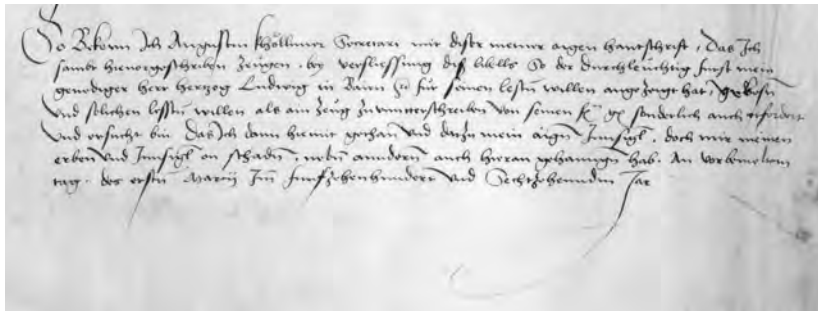 So Bekenn Ich Augustin Khöllnner Secretari mit diser meiner aigen hantschrifft, Das Ich
sambt hievorgeschriben zeugen, bey verschliessung diss libells So der durchleuchtig fürst mein
genediger herr herzog Ludwig in Bairn für seinen lesstn willen angezeigt hat, gewesen
Und solichen lesstn willen als ain zeug zuunnterschreiben von seinen f. g. sonderlich auch erfordert
und ersucht bin Das Ich dann hiemit gethan Und darzu mein aigen Innsigl, doch mir meinen
erben Und Innsigl on schaden, neben anndern auch hieran gehanngen hab. An
tag. des ersten Marcii Im funfzehenhundert Und Sechtzehenndn Jar